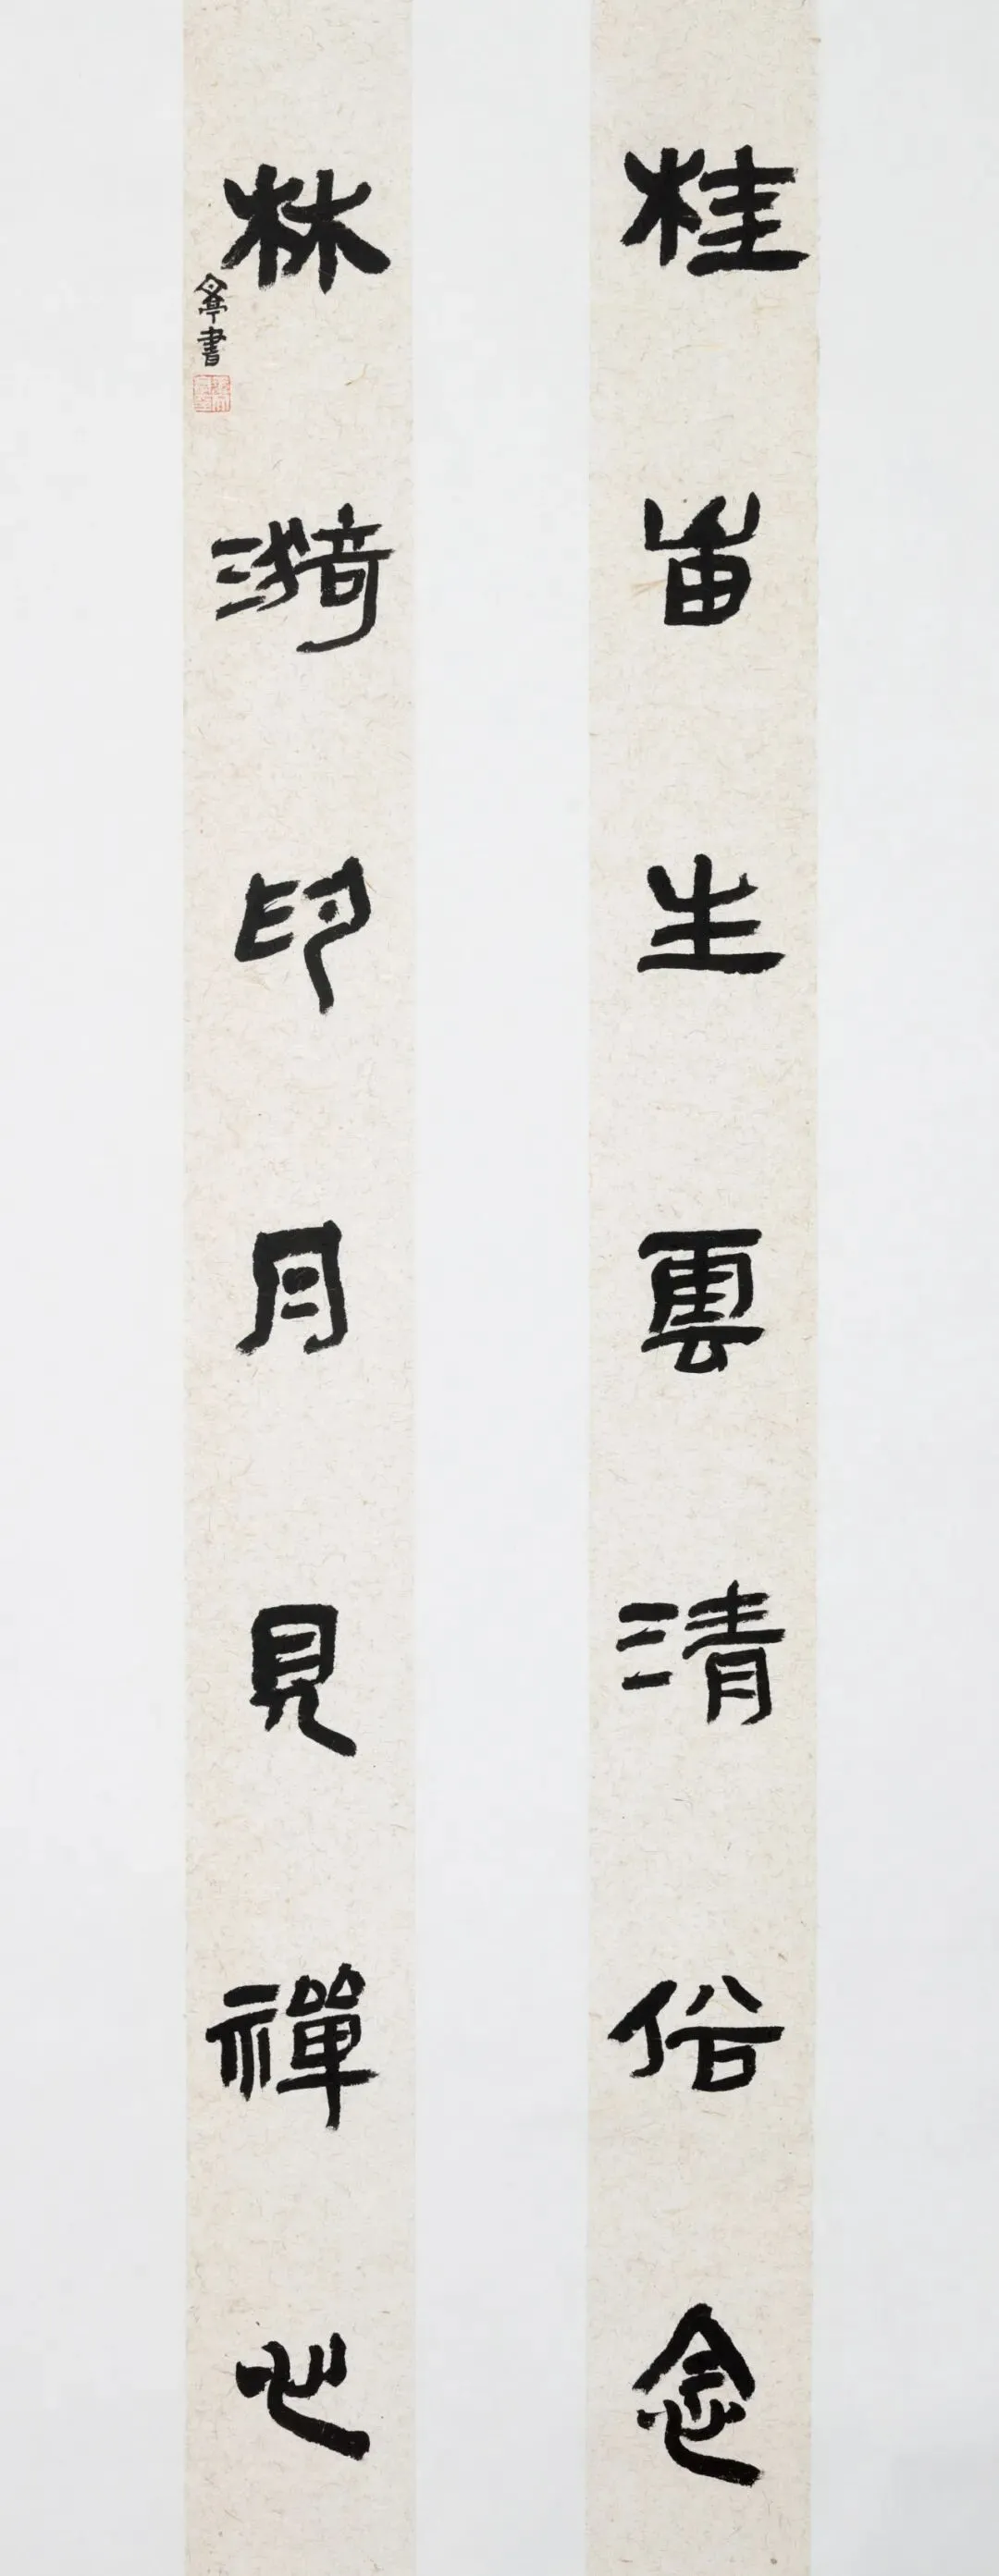 桂峀生雲清俗念
林漪印月見禪心
亭書